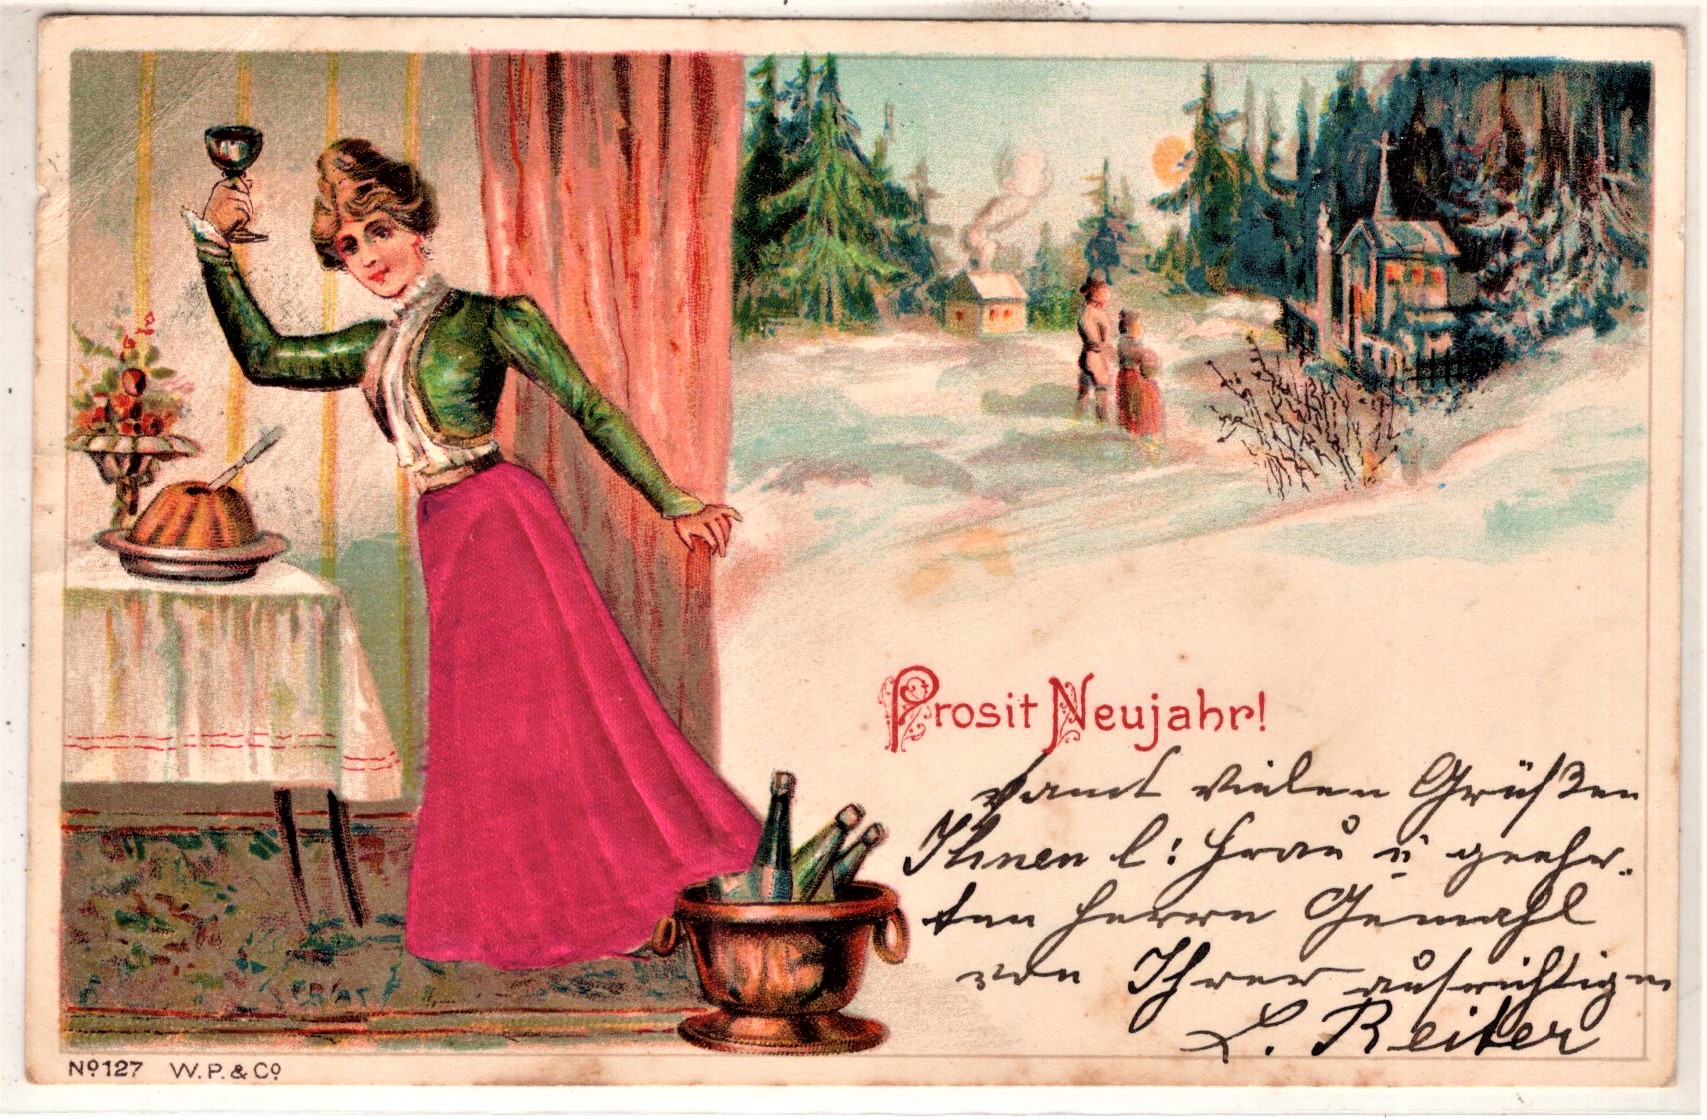 Prosit Neujahr!
samt vielen Grüßen
Ihnen l: Frau u geehr.
ten Herrn Gemahl
von Ihrer aufrichtigen
L. Reiter
No 127 W. P. & Co